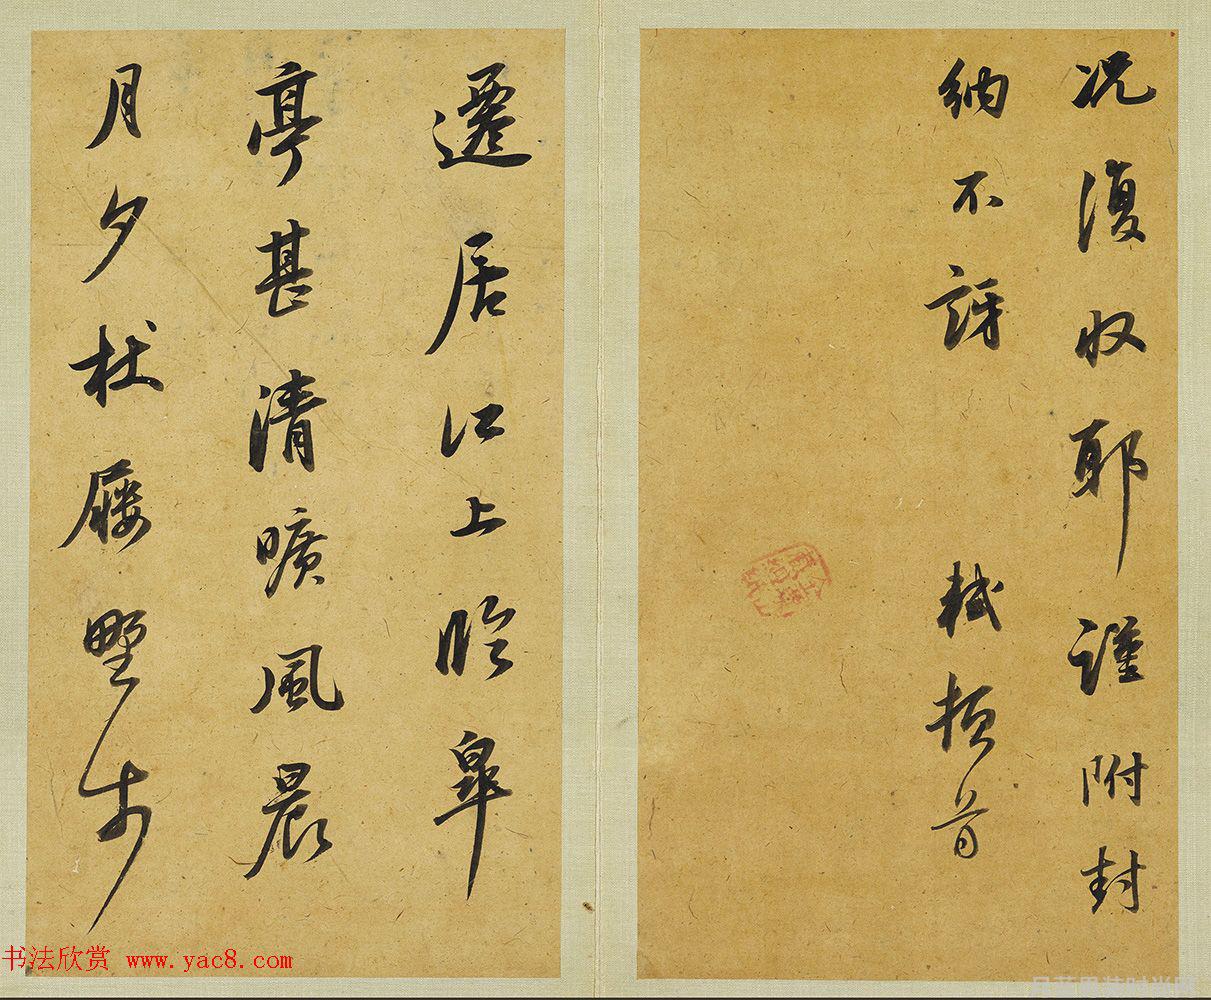 況復收耶謹附封
納不訝 軾頓首
遷居江上臨皐
亭甚清曠風晨
月夕杖屨野步
书法欣赏 www.yac8.com